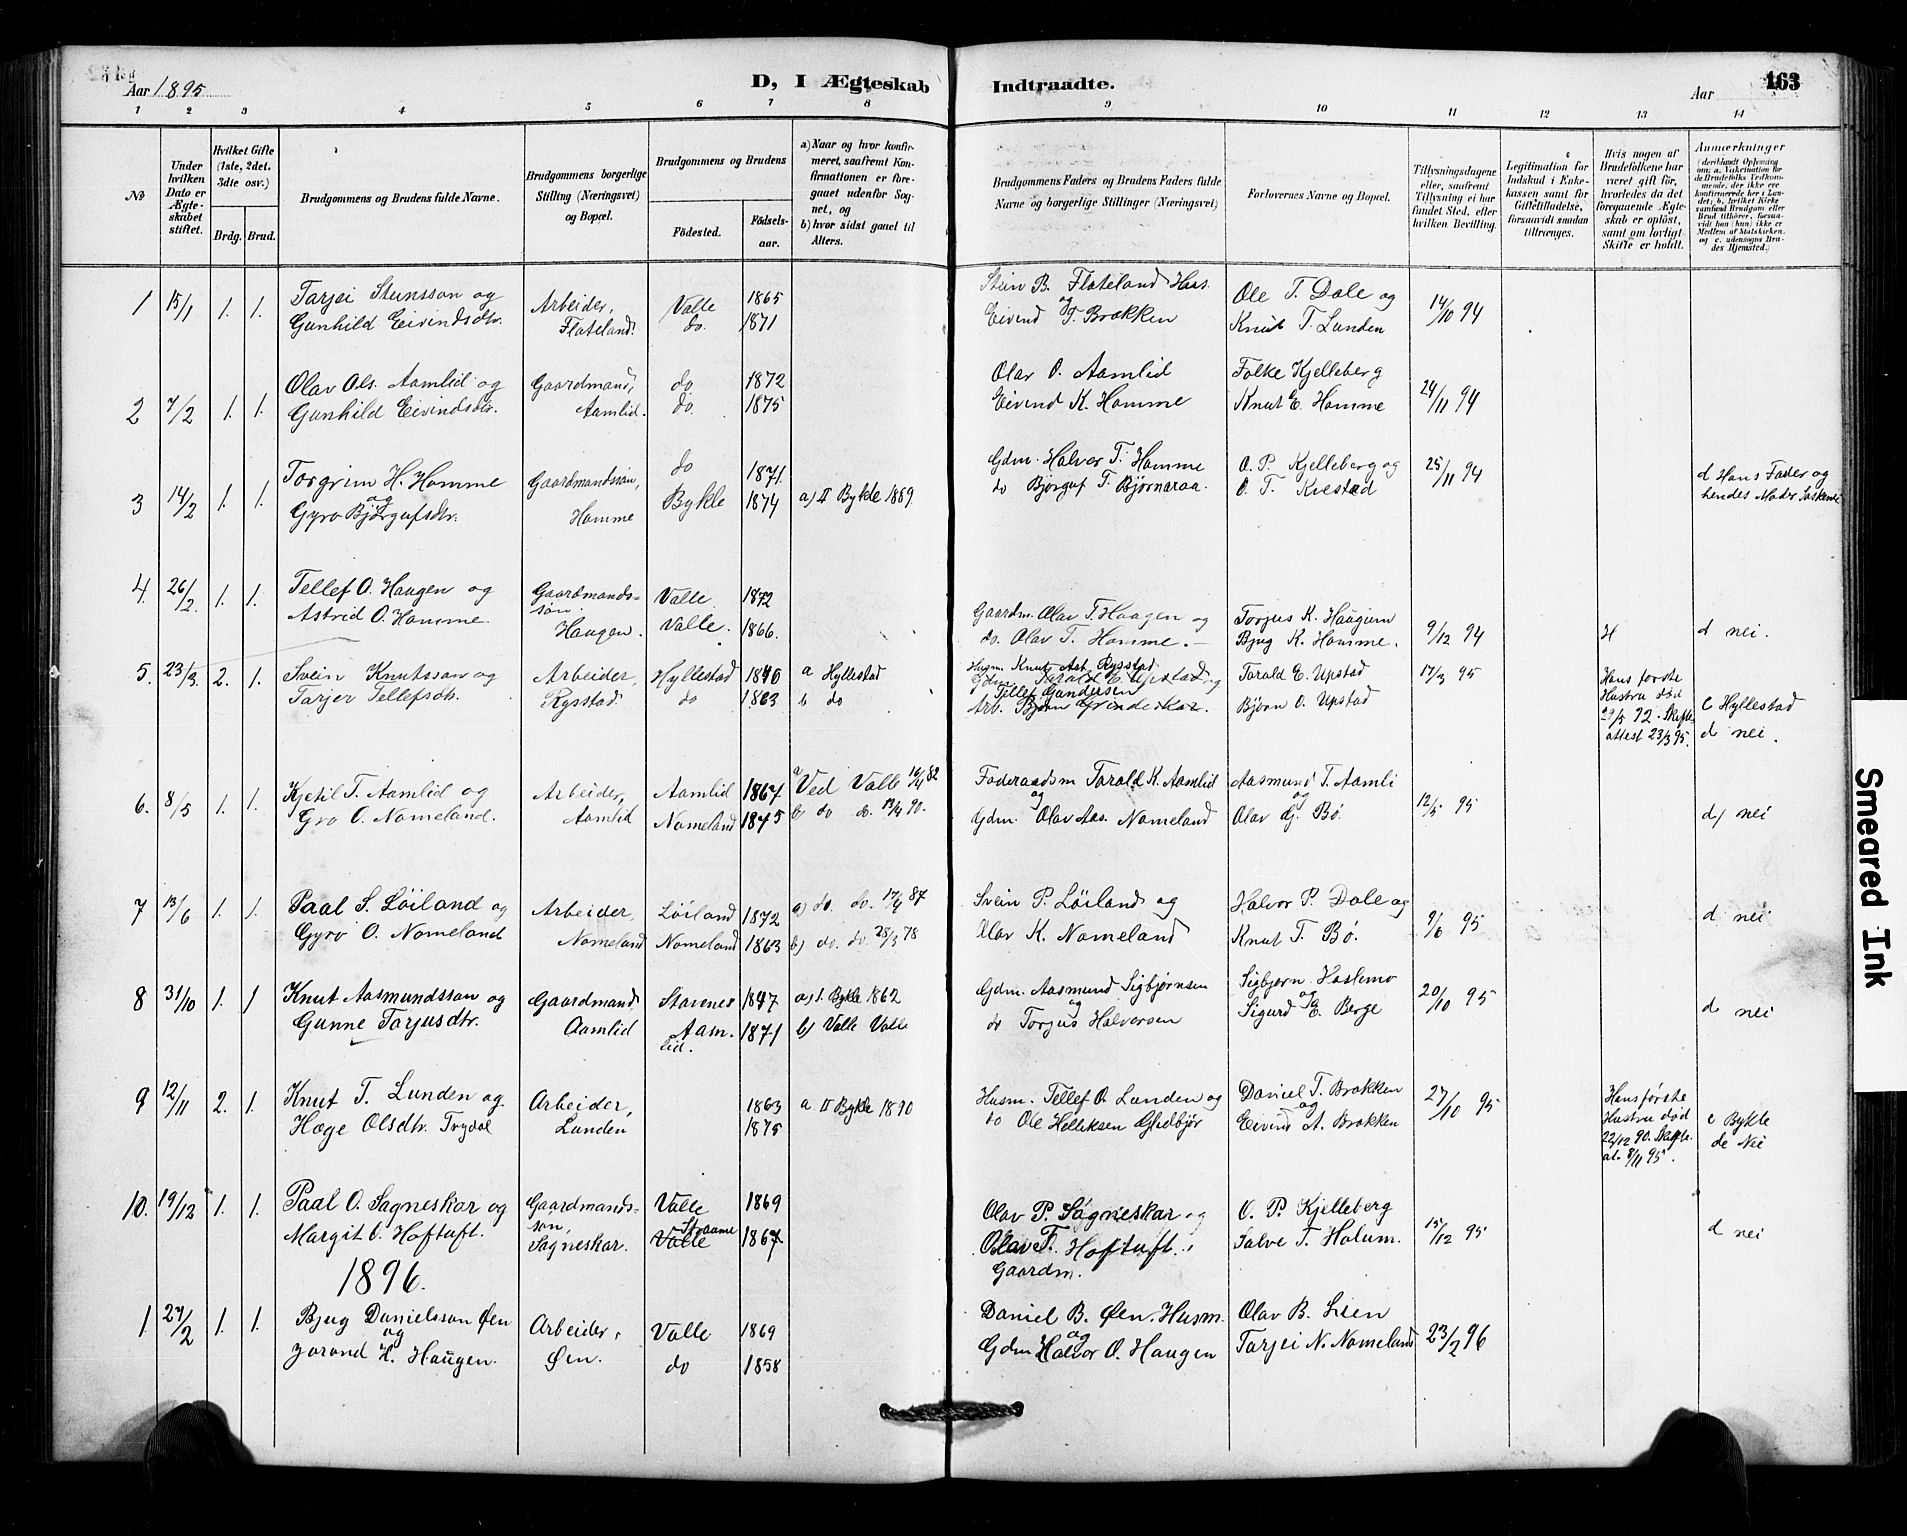 Aar 1895
D, I Ægteskab Indtraadte.
163
Aar
1 2 3 4 5 6 7 8 9 10 11 12 13 14
No
Under hvilken Dato er Ægteskabet stiftet.
Hvilket Gifte (1ste, 2det, 3die osv.)
Brdg. Brud.
Brudgommens og Brudens fulde Navne.
Brudgommens borgerlige Stilling (Næringsvei) og Bopæl.
Brudgommens og Brudens
Fødested.
Fødselsaar.
a) Naar og hvor konfirmeret, saafremt Konfirmationen er foregaaet udenfor Sognet, og
b) hvor sidst gaaet til Alters.
Brudgommens Faders og Brudens Faders fulde Navne og borgerlige Stillinger (Næringsvei)
Forlovernes Navne og Bopæl.
Tillysningsdagene eller, saafremt Tillysning ei har fundet Sted, efter hvilken Bevilling.
Legitimation for Indskud i Enkekassen samt for Giftetilladelse, forsaavidt saadan tiltrænges.
Hvis nogen af Brudefolkene har været gift før, hvorledes da det foregaaende Ægteskab er opløst, samt om lovligt Skifte er holdt.
Anmerkninger
1 15/1 1. 1. Tarjei Steinsson og Arbeider, Valle 1865 Stein B. Flateland Haas. Ole T. Dale og 14/10 94
Gunhild Eivindsdtr. Flateland. do. 1871 og Eivend T. Brokken Knut T. Lunden
2 7/2 1. 1. Olav Ols. Aamlid og Gaardmand, do 1872 Olav O. Aamlid Folke Kjelleberg 24/11 94
Gunhild Eivindsdtr. Aamlid. do. 1875 Eivend K. Homme Knut E. Homme
3 14/2 1. 1. Torgrim H. Homme Gaardmandssøn, do 1871. Gdm. Halvor T. Homme O. P. Kjelleberg og 25/11 94 d Hans Fader og
og Gyro Bjørgufsdtr. Homme Bykle 1874 a) II Bykle 1889 do Bjørguf T. Bjørnaraa. O. T. Kvestad hendes Moder
4. 26/2. 1. 1. Tellef O. Haugen og Gaardmandssøn. Valle. 1872 Gaardm. Olav T. Haugen og Torjus K. Haugum 9/12 94 H d nei.
Astrid O. Homme. Haugen. Valle. 1866. do. Olav T. Homme. - Bjug K. Homme.
5. 23/3. 2. 1. Svein Knutsson og Arbeider, Hyllestad 1840 a Hyllestad Husm. Knut Rysstad Tarald E. Upstad 17/3 95 Hans første
Gdm. Tarald E. Upstad og
Tarjer Tellefsdtr. Rysstad. do 1863 b do Tellef Gundersen Bjørn O. Upstad Hustru død
Arb. Bjørn Grindeskar. 29/5 92. Skifteattest 23/3 95. c Hyllestad
d nei.
6. 8/5 1. 1. Kjetil T. Aamlid og Arbeider, Aamlid 1867 a Ved Valle 16/4 82 Føderaadsm Tarald K. Aamlid Aasmund T. Aamli 12/5 95 d) nei
Gro O. Nomeland. Aamlid Nomeland 1875 b do do. 13/4 90. og Gdm. Olav Aas. Nomeland og Olav G. Bø.
7 13/6 1. 1. Paal S. Løiland og Arbeider, Løiland 1872 a) do. do. 17/4 87 Svein P. Løiland og Halvor P. Dale og 9/6 95 d nei
Gyro O. Nomeland Nomeland Nomeland 1863 b) do. do. 28/3 78 Olav K. Nomeland Knut T. Bø.
8 31/10 1. 1 Knut Aasmundsson og Gaardmand Stavenes 1847 a) 1. Bykle 1862 Gdm. Aasmund Sigbjørnsen Sigbjørn Haslemo 20/10 95 d nei
Gunne Torjusdtr. Aamlid Aamlid. 1871 b) Valle Valle og do Torjus Halversen og Sigurd E. Berge
9 12/11 2. 1. Knut T. Lunden og Arbeider, 1863 a II Bykle 1890 Husm. Tellef O. Lunden og Daniel T. Brokken 27/10 95 Hans første
Hæge Olsdtr. Trydal Lunden 1875 do Ole Helliksen Gledbjør og Eivind A. Brokken Hustru død c Bykle
22/12 90. Skifteat. 8/11 95. de Nei
10. 19/12 1. 1. Paal O. Sagneskar og Gaardmandssøn, Valle 1869 Olav P. Sagneskar og O. P. Kjelleberg 15/12 95 d nei
Margit O. Hoftuft. Sagneskar. Valle Straume 1867 Olav T. Hoftuft. Salve T. Holum.
Gaardm.
1896.
1. 27/2 1. 1. Bjug Danielsson Øen Arbeider, Valle 1869 Daniel B. Øen, Husm. Olav B. Lien 23/2 96
og Jorand H. Haugen. Øen. do 1858 og Gdm Halvor O. Haugen Tarjei N. Nomeland
Smeared Ink